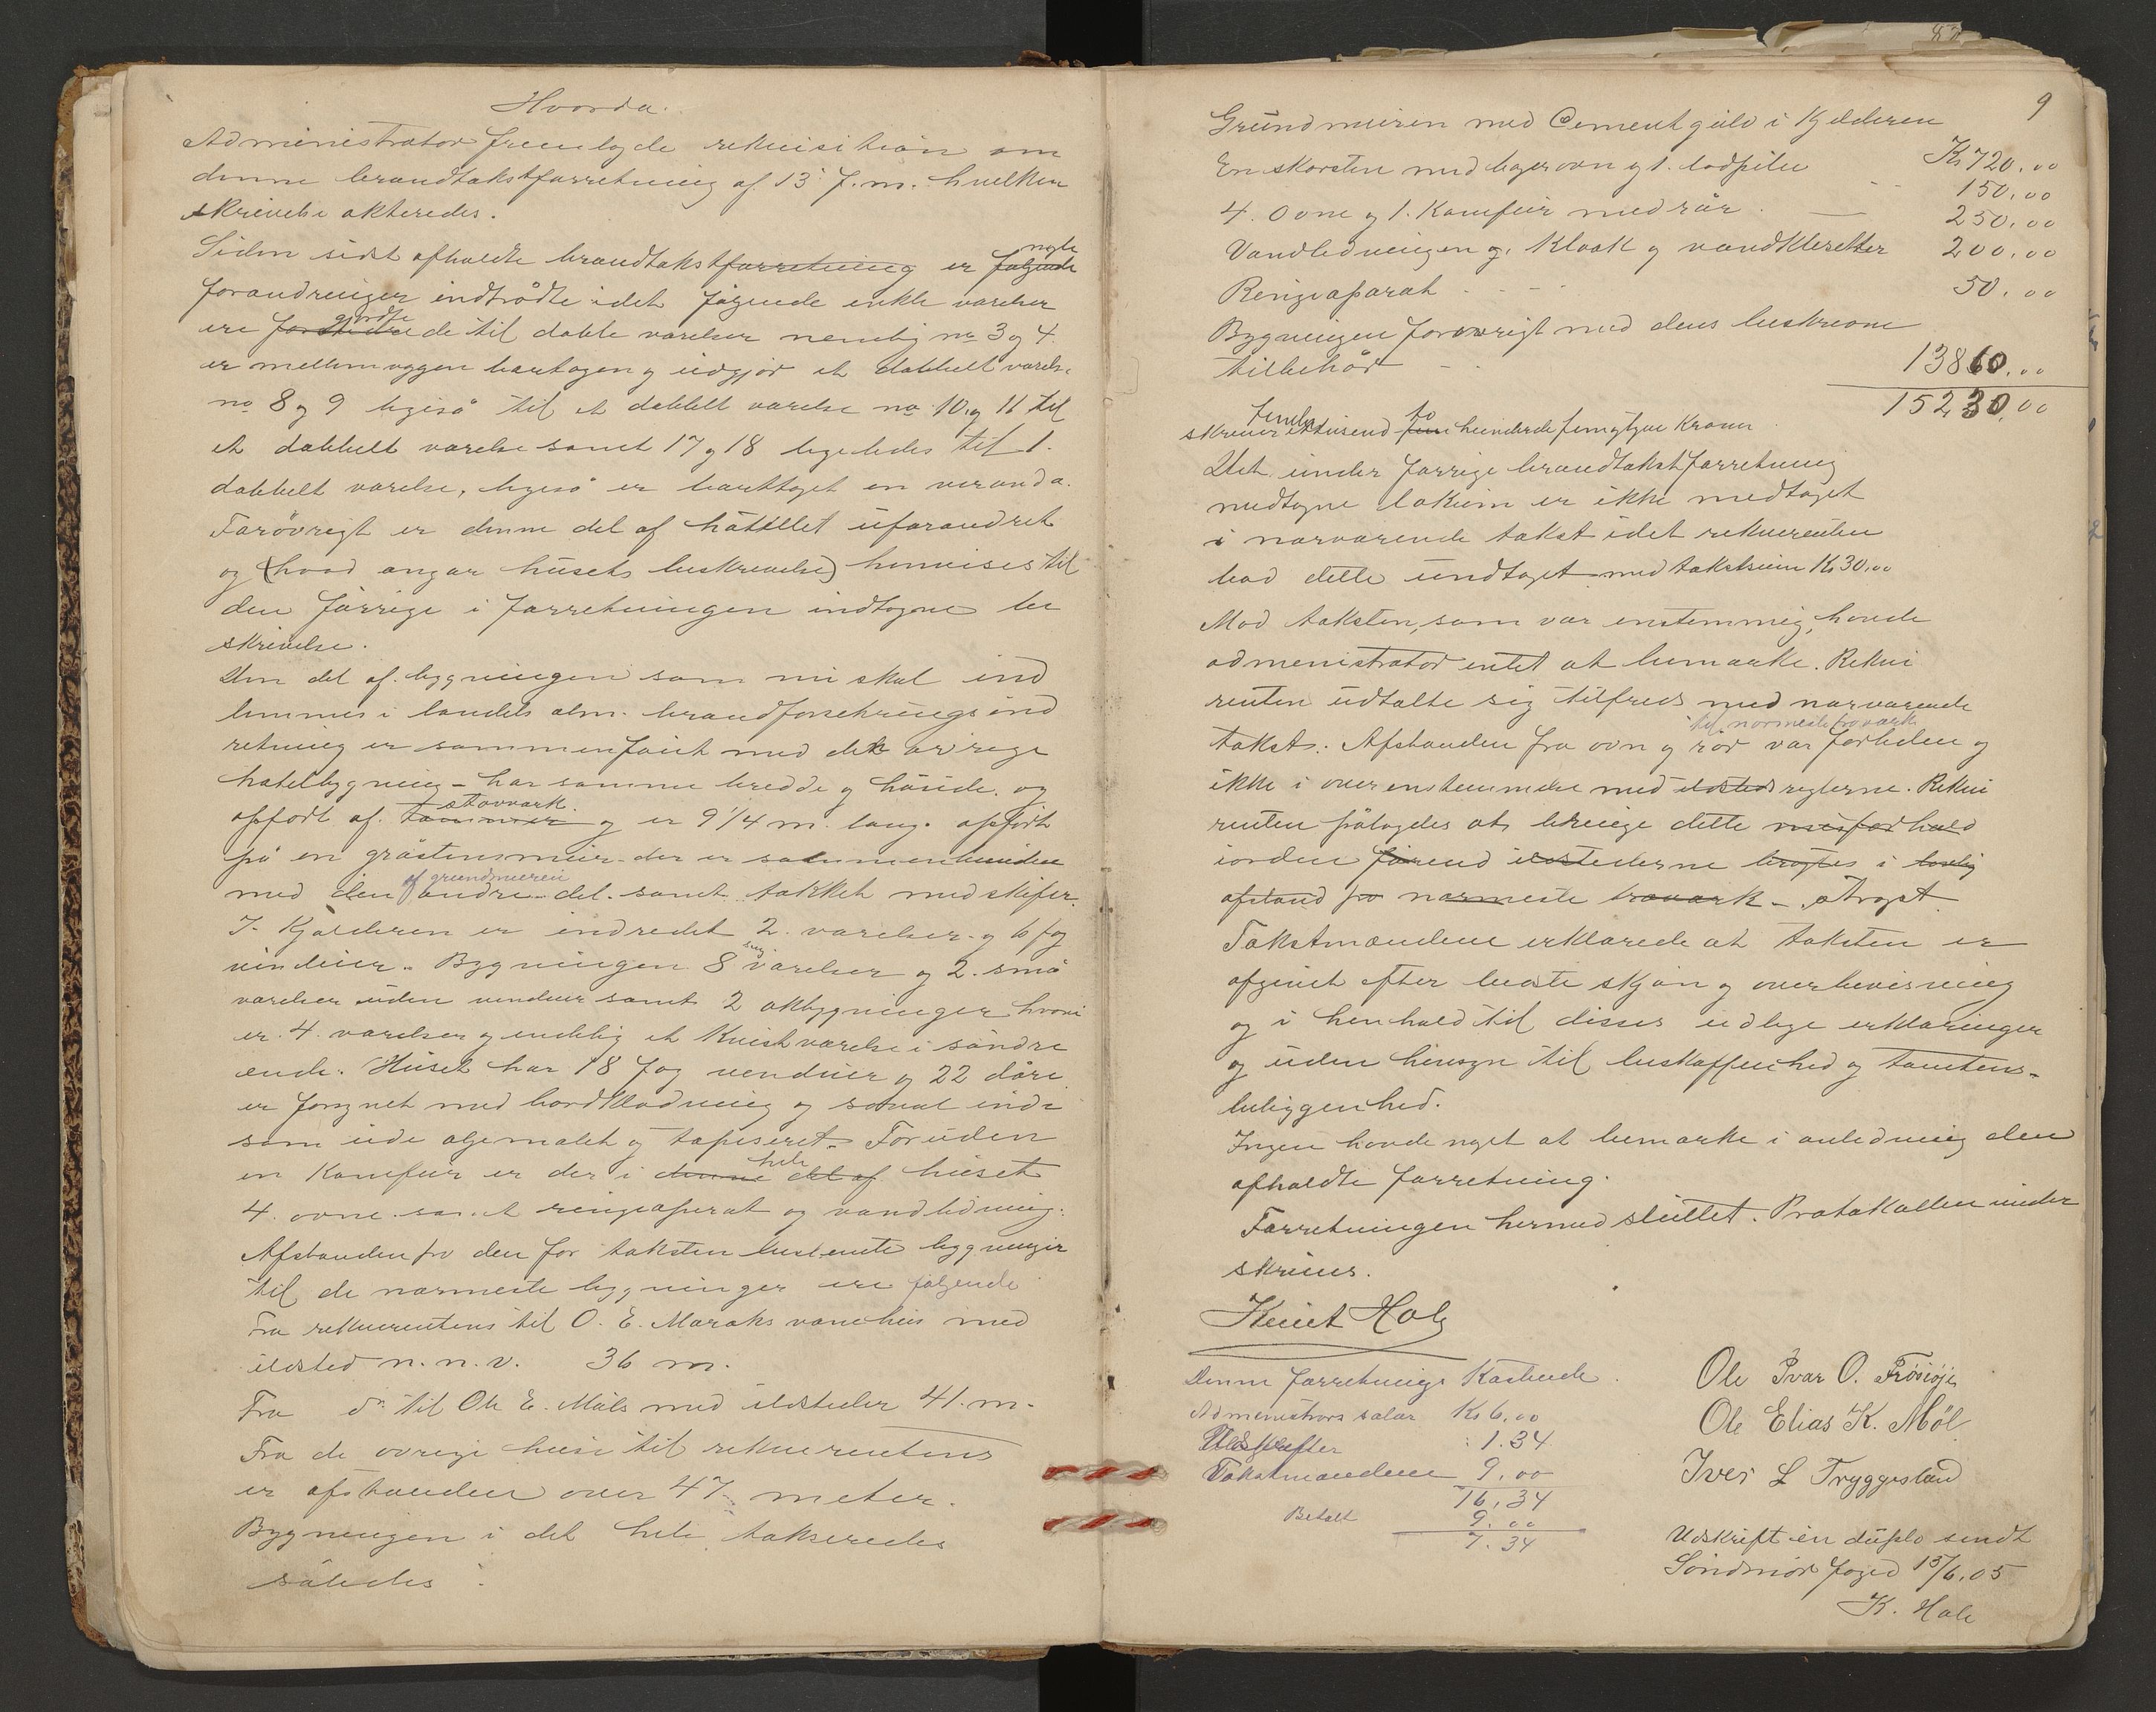 Hvorda.
Administrator fremlagde rekvisition om
denne brandtakstforretning af 13 f.m. hvilken
skrivelse akteredes.
Siden sidst afholdte brandtakstforretning er følgende nogle
forandringer indtrådte idet følgende enkle værelser
ere gjordte til doble værelser nemlig no 3 og 4.
er mellemvæggen borttagen og udgjør et dobbelt værelse
no 8 og 9 ligeså til et dobbelt værelse no 10 og 11 til
et dobbelt værelse samt 17 og 18 ligeledes til 1.
dobbelt værelse, ligeså er borttaget en veranda.
Forøvrigt er denne del af hotellet uforandret
og (hvad angår husets beskrivelse) henvises til
den forrige i forretningen indtagne be
skrivelse.
Den del af bygningen som nu skal ind
lemmes i landets alm. brandforsekrings ind
retning er sammenføiet med den øvrige
hotelbygning - har samme bredde og høide. og
opført af tømmer stavværk. og er 9 1/4 m. lang. opført
på en gråstensmur der er sammenbunden
med den andre del af grundmuren samt tækket med skifer.
I Kjælderen er indredet 2. værelser og 6 fag
vinduer. Bygningen 8 værelser og 2. små
værelser uden vinduer samt 2 opbygninger hvori
er 4. værelser og endelig et Kvistværelse i søndre
ende. Huset har 18 fag vinduer og 22 døre
er forsynet med bordklædning og såvel inde
som ude oljemalet og tapiseret. Foruden
en Komfur er der i denne del af hele huset
4. ovne samt ringeaparat og vandledning.
Afstanden fra den for taksten bestemte bygninger
til de nærmeste bygninger ere følgende
Fra rekverentens til O. E. Maraks vaanehus med
ildsted n.n.v. 36 m.
Fra do til Ole E. Møls med ildsteder 41. m.
Fra de øvrige huse til rekverentens
er afstanden over 47 meter.
Bygningen i det hele takseredes
således :
9
Grundmuren med Cementgulv i Kjelderen Kr 720.00
En skorsten med bagerovn og 1. lodpibe 150.00
4. Ovne og 1. Komfur med rør 250.00
Vandledningen og Kloak og vandkloretter 200.00
Ringeaparat 50.00
Bygningen forøvrigt med dens beskrevne
tilbehør 13860.00
15230.00
skriver Femten tusend fem to hundrede femogtyve Kroner
Det under forrige brandtakstforretning
medtagne lokum er ikke medtaget
i nærværende takst idet rekverenten
bad dette undtaget med takstsum Kr 30.00
Mod taksten, som var enstemmig, havde
administrator intet at bemærke. Rekvi
renten udtalte sig tilfreds med nærværende
takst. Afstanden fra ovn og rør til nærmeste træværk var forliden og
ikke i overenstemmelse med ildsteds reglerne. Rekvi
renten pålagdes at bringe dette misforhold
iorden førend ildstederne brøges i lovlig
afstand fra nærmeste træværk - strøget
Takstmændene erklærede at taksten er
afgivet efter bedste skjøn og overbevisning
og i henhold til disses edlige erklæringer
og uden hensyn til beskaffenhed og tomtens-
beliggenhed.
Ingen havde noget at bemærke i anledning den
afholdte forretning.
Forretningen hermed sluttet. Protokollen under
skrives.
Knut Hole
Denne forretnings Kostende.
Administrors salær Kr 6.00
Udskrifter : 1.34
Takstmændene 9.00
16.34
Betalt 9.00
7.34
Ole Ivar O. Frøsiøje
Ole Elias K. Møl
Iver L Tryggestad
Udskrift in duplo sendt
Søndmør foged 15/6.05
K. Hole